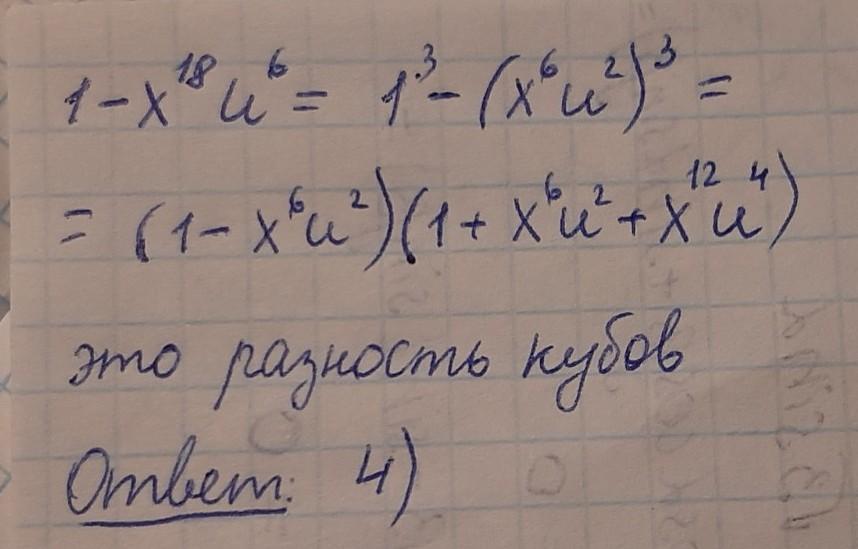 1 - x¹⁸u⁶ = 1³ - (x⁶u²)³ =
= (1 - x⁶u²)(1 + x⁶u² + x¹²u⁴)
это разность кубов
Ответ: 4)